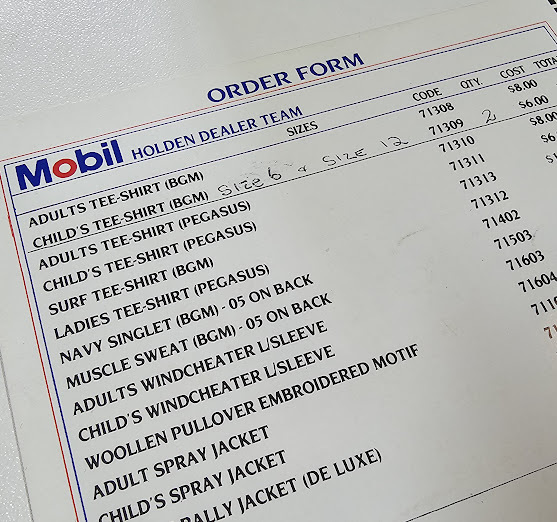 ORDER FORM
Mobil HOLDEN DEALER TEAM SIZES CODE QTY. COST TOTA
ADULTS TEE-SHIRT (BGM) 71308 $8.00
CHILD'S TEE-SHIRT (BGM) SIZE 6 & SIZE 12 71309 2 $6.00
ADULTS TEE-SHIRT (PEGASUS) 71310 $8.00
CHILD'S TEE-SHIRT (PEGASUS) 71311
SURF TEE-SHIRT (BGM) 71313
LADIES TEE-SHIRT (PEGASUS) 71312
NAVY SINGLET (BGM) - 05 ON BACK 71402
MUSCLE SWEAT (BGM) - 05 ON BACK 71503
ADULTS WINDCHEATER L/SLEEVE 71603
CHILD'S WINDCHEATER L/SLEEVE 71604
WOOLLEN PULLOVER EMBROIDERED MOTIF
ADULT SPRAY JACKET
CHILD'S SPRAY JACKET
RALLY JACKET (DE LUXE)